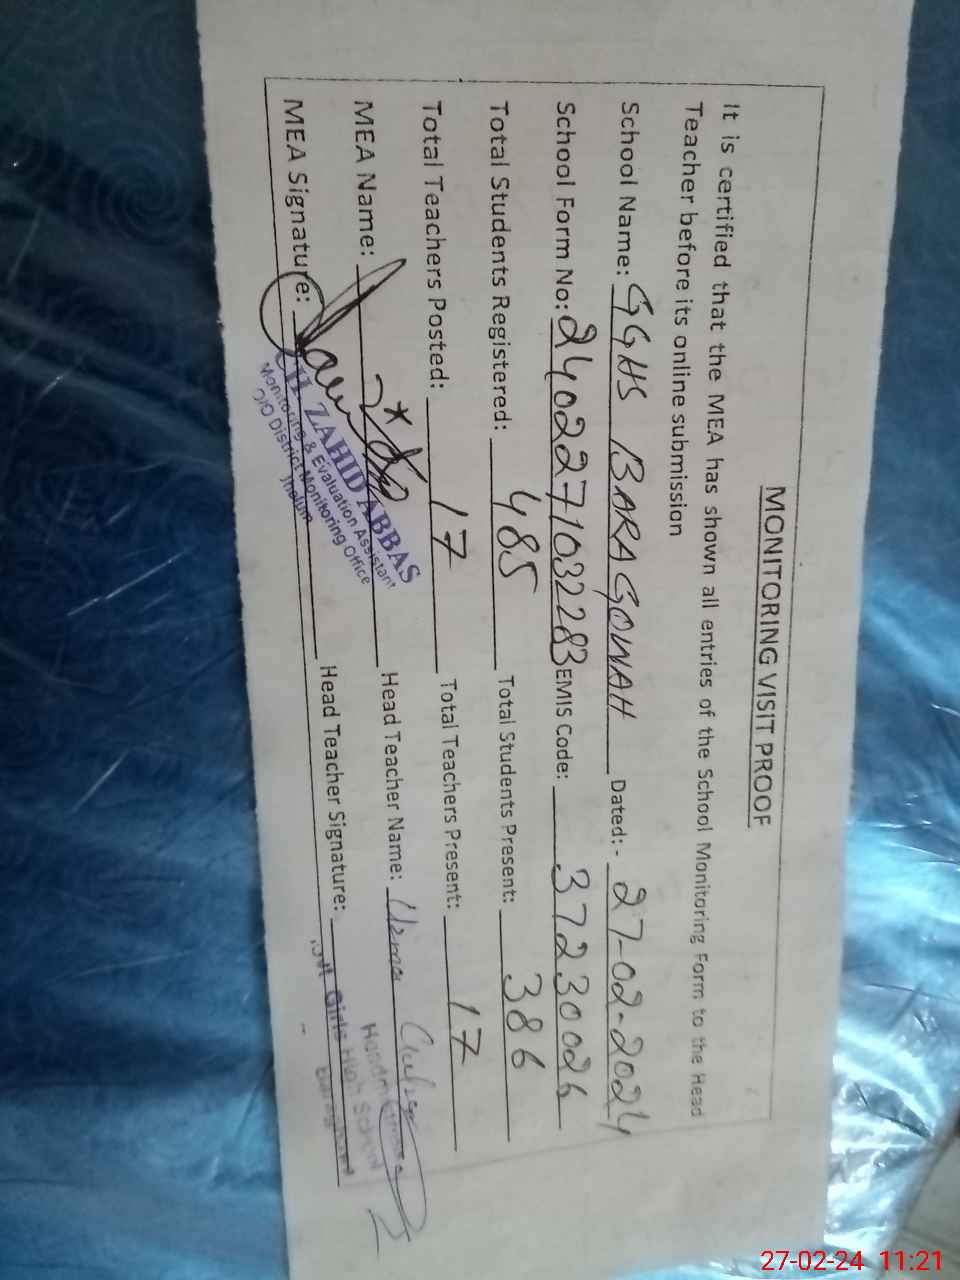 MONITORING VISIT PROOF
It is certified that the MEA has shown all entries of the School Monitoring Form to the Head
Teacher before its online submission
School Name: GGHS BARAGOWAH Dated:- 27-02-2024
School Form No: 2402271032283 EMIS Code: 37230026
Total Students Registered: 485 Total Students Present: 386
Total Teachers Posted: 17 Total Teachers Present: 17
MEA Name: Head Teacher Name: Uzma
MEA Signature: Head Teacher Signature:
ZAHID ABBAS
Monitoring & Evaluation Assistant
O/O District Monitoring Office
Jhelum
Girls High School
27-02-24 11:21